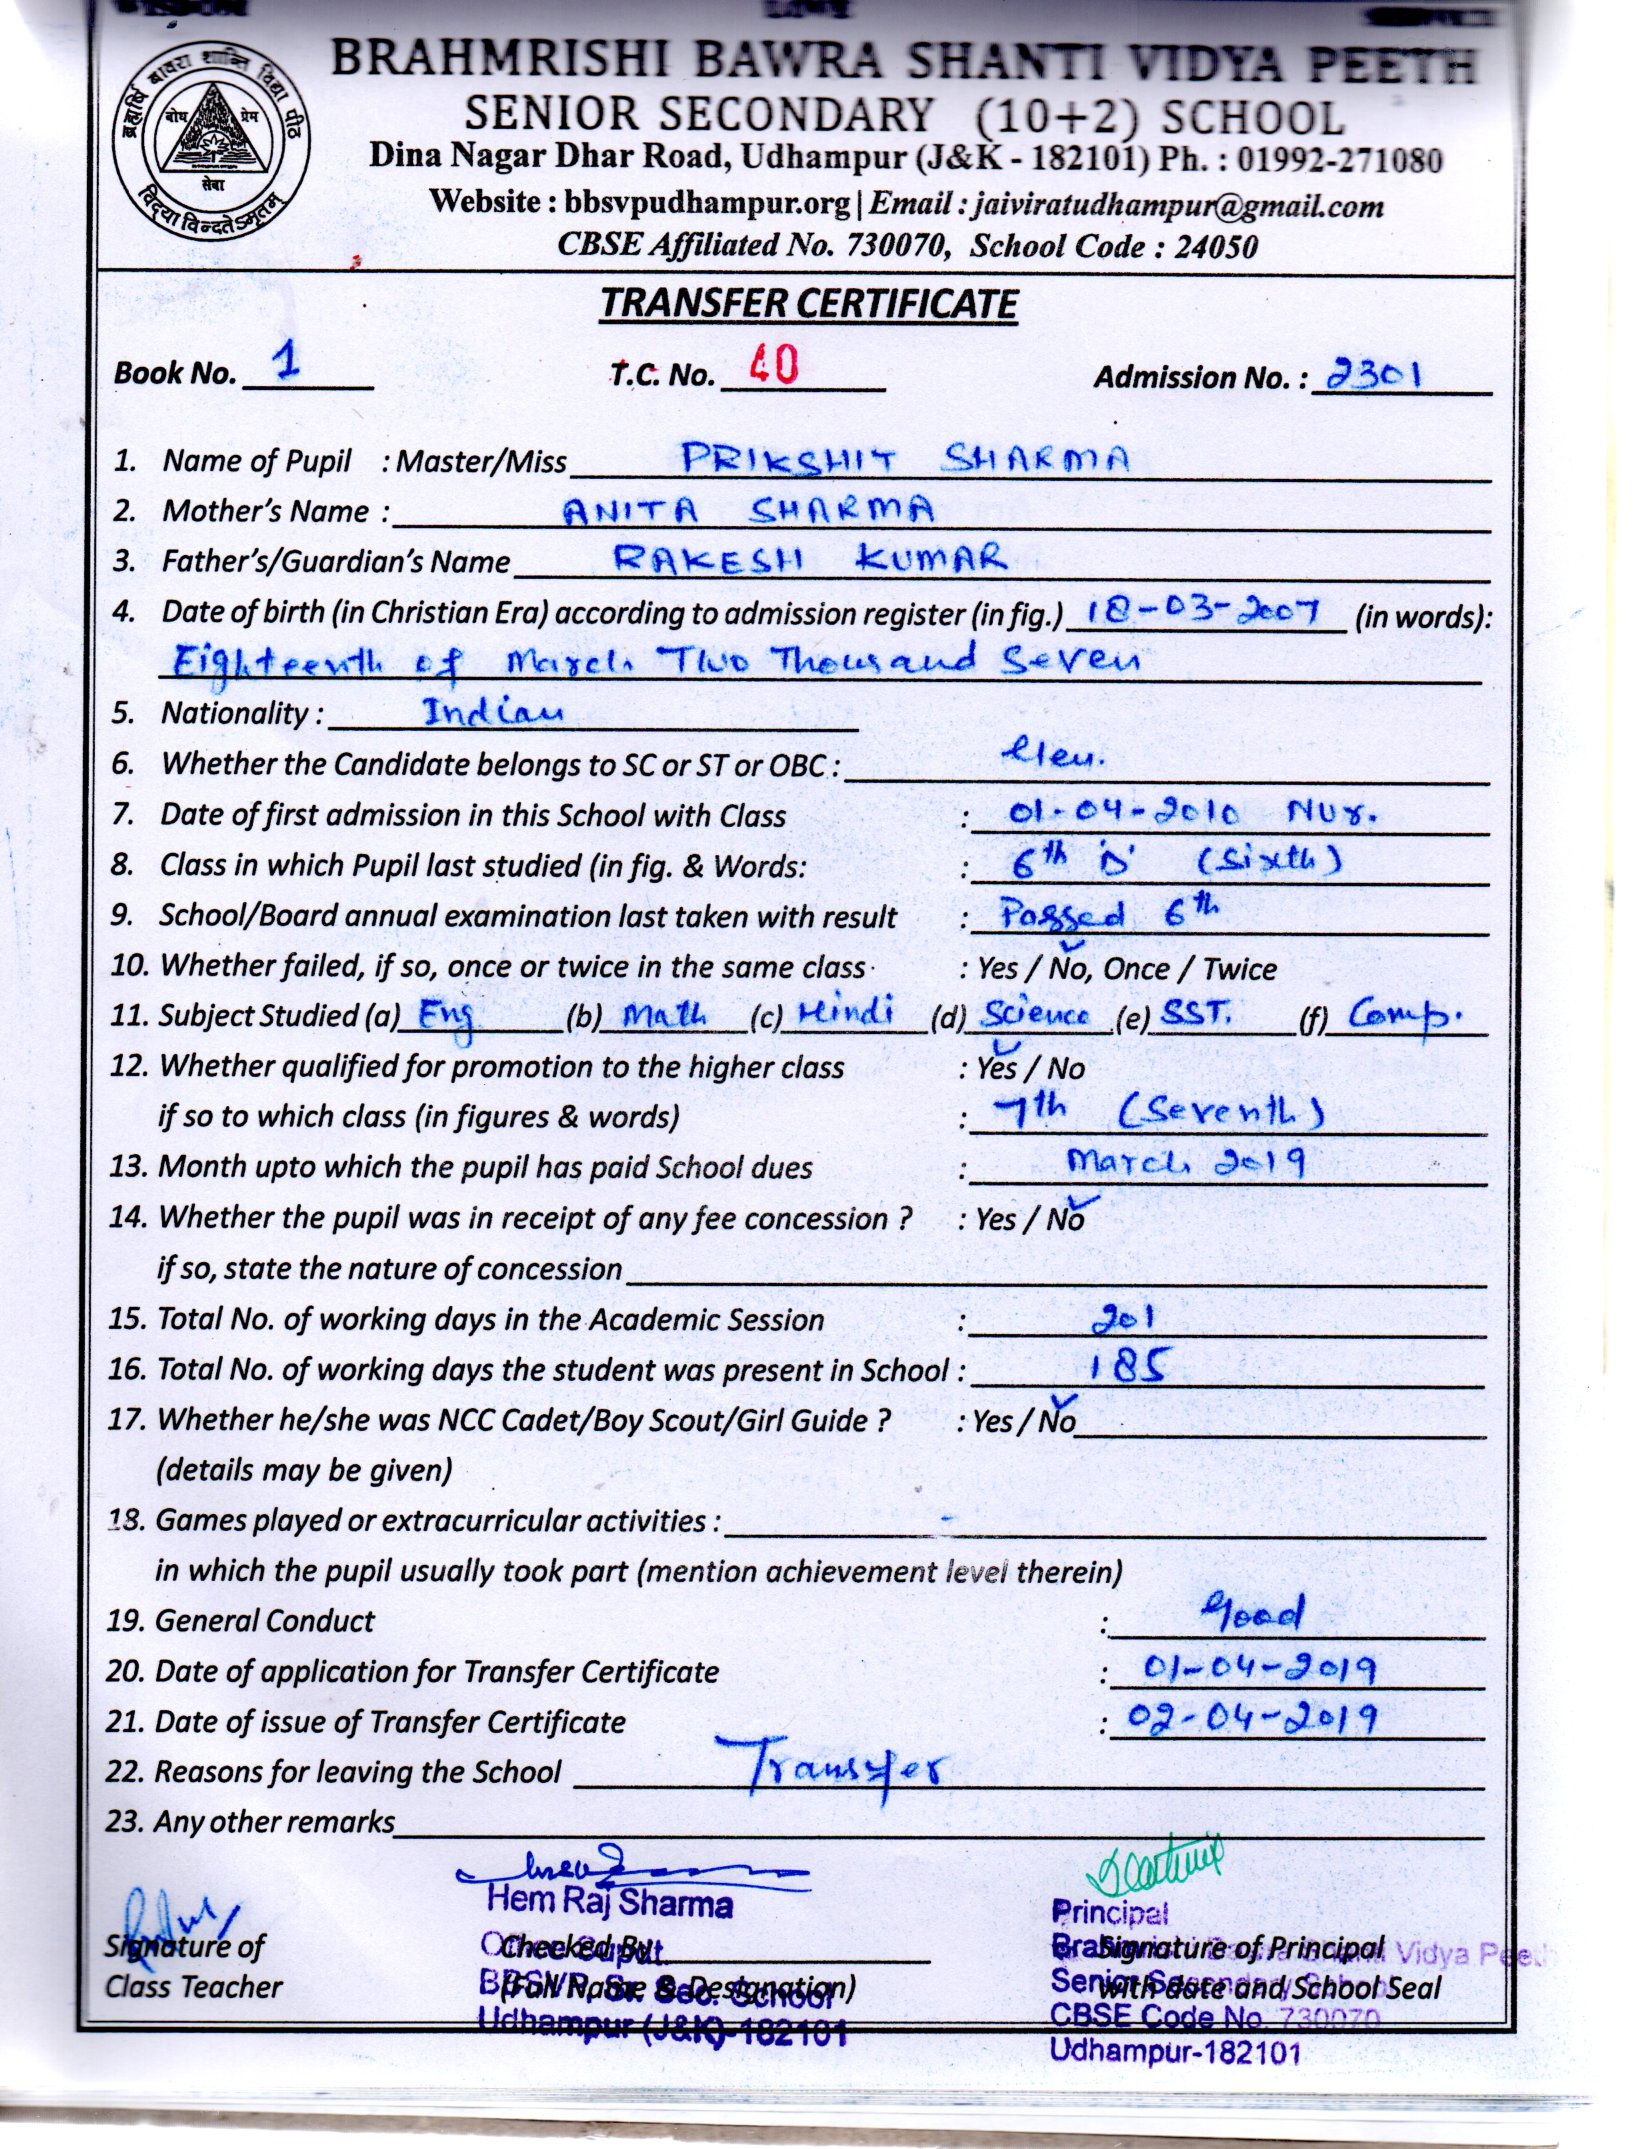 BRAHMRISHI BAWRA SHANTI VIDYA PEETH
SENIOR SECONDARY (10+2) SCHOOL
Dina Nagar Dhar Road, Udhampur (J&K - 182101) Ph. : 01992-271080
Website : bbsvpudhampur.org | Email : jaiviratudhampur@gmail.com
CBSE Affiliated No. 730070, School Code : 24050
ब्रह्मर्षि बावरा शान्ति विद्या पीठ
बोध प्रेम
सेवा
विद्यया विन्दतेऽमृतम्
TRANSFER CERTIFICATE
Book No. 1 T.C. No. 40 Admission No. : 2301
1. Name of Pupil : Master/Miss PRIKSHIT SHARMA
2. Mother's Name : ANITA SHARMA
3. Father's/Guardian's Name RAKESH KUMAR
4. Date of birth (in Christian Era) according to admission register (in fig.) 18-03-2007 (in words):
Eighteenth of March Two Thousand Seven
5. Nationality : Indian
6. Whether the Candidate belongs to SC or ST or OBC : Gen.
7. Date of first admission in this School with Class : 01-04-2010 Nur.
8. Class in which Pupil last studied (in fig. & Words: : 6th 'D' (Sixth)
9. School/Board annual examination last taken with result : Passed 6th
10. Whether failed, if so, once or twice in the same class : Yes / No, Once / Twice
11. Subject Studied (a) Eng (b) Math (c) Hindi (d) Science (e) SST. (f) Comp.
12. Whether qualified for promotion to the higher class : Yes / No
if so to which class (in figures & words) : 7th (Seventh)
13. Month upto which the pupil has paid School dues : March 2019
14. Whether the pupil was in receipt of any fee concession ? : Yes / No
if so, state the nature of concession
15. Total No. of working days in the Academic Session : 201
16. Total No. of working days the student was present in School : 185
17. Whether he/she was NCC Cadet/Boy Scout/Girl Guide ? : Yes / No
(details may be given)
18. Games played or extracurricular activities : -
in which the pupil usually took part (mention achievement level therein)
19. General Conduct : Good
20. Date of application for Transfer Certificate : 01-04-2019
21. Date of issue of Transfer Certificate : 02-04-2019
22. Reasons for leaving the School Transfer
23. Any other remarks
Hem Raj Sharma
Principal
Signature of Checked By Signature of Principal
Vidya Peeth
Class Teacher (Full Name & Designation) with date and School Seal
Senior Secondary School
BBSVP, Sr. Sec. School
CBSE Code No. 730070
Udhampur (J&K)-182101
Udhampur-182101